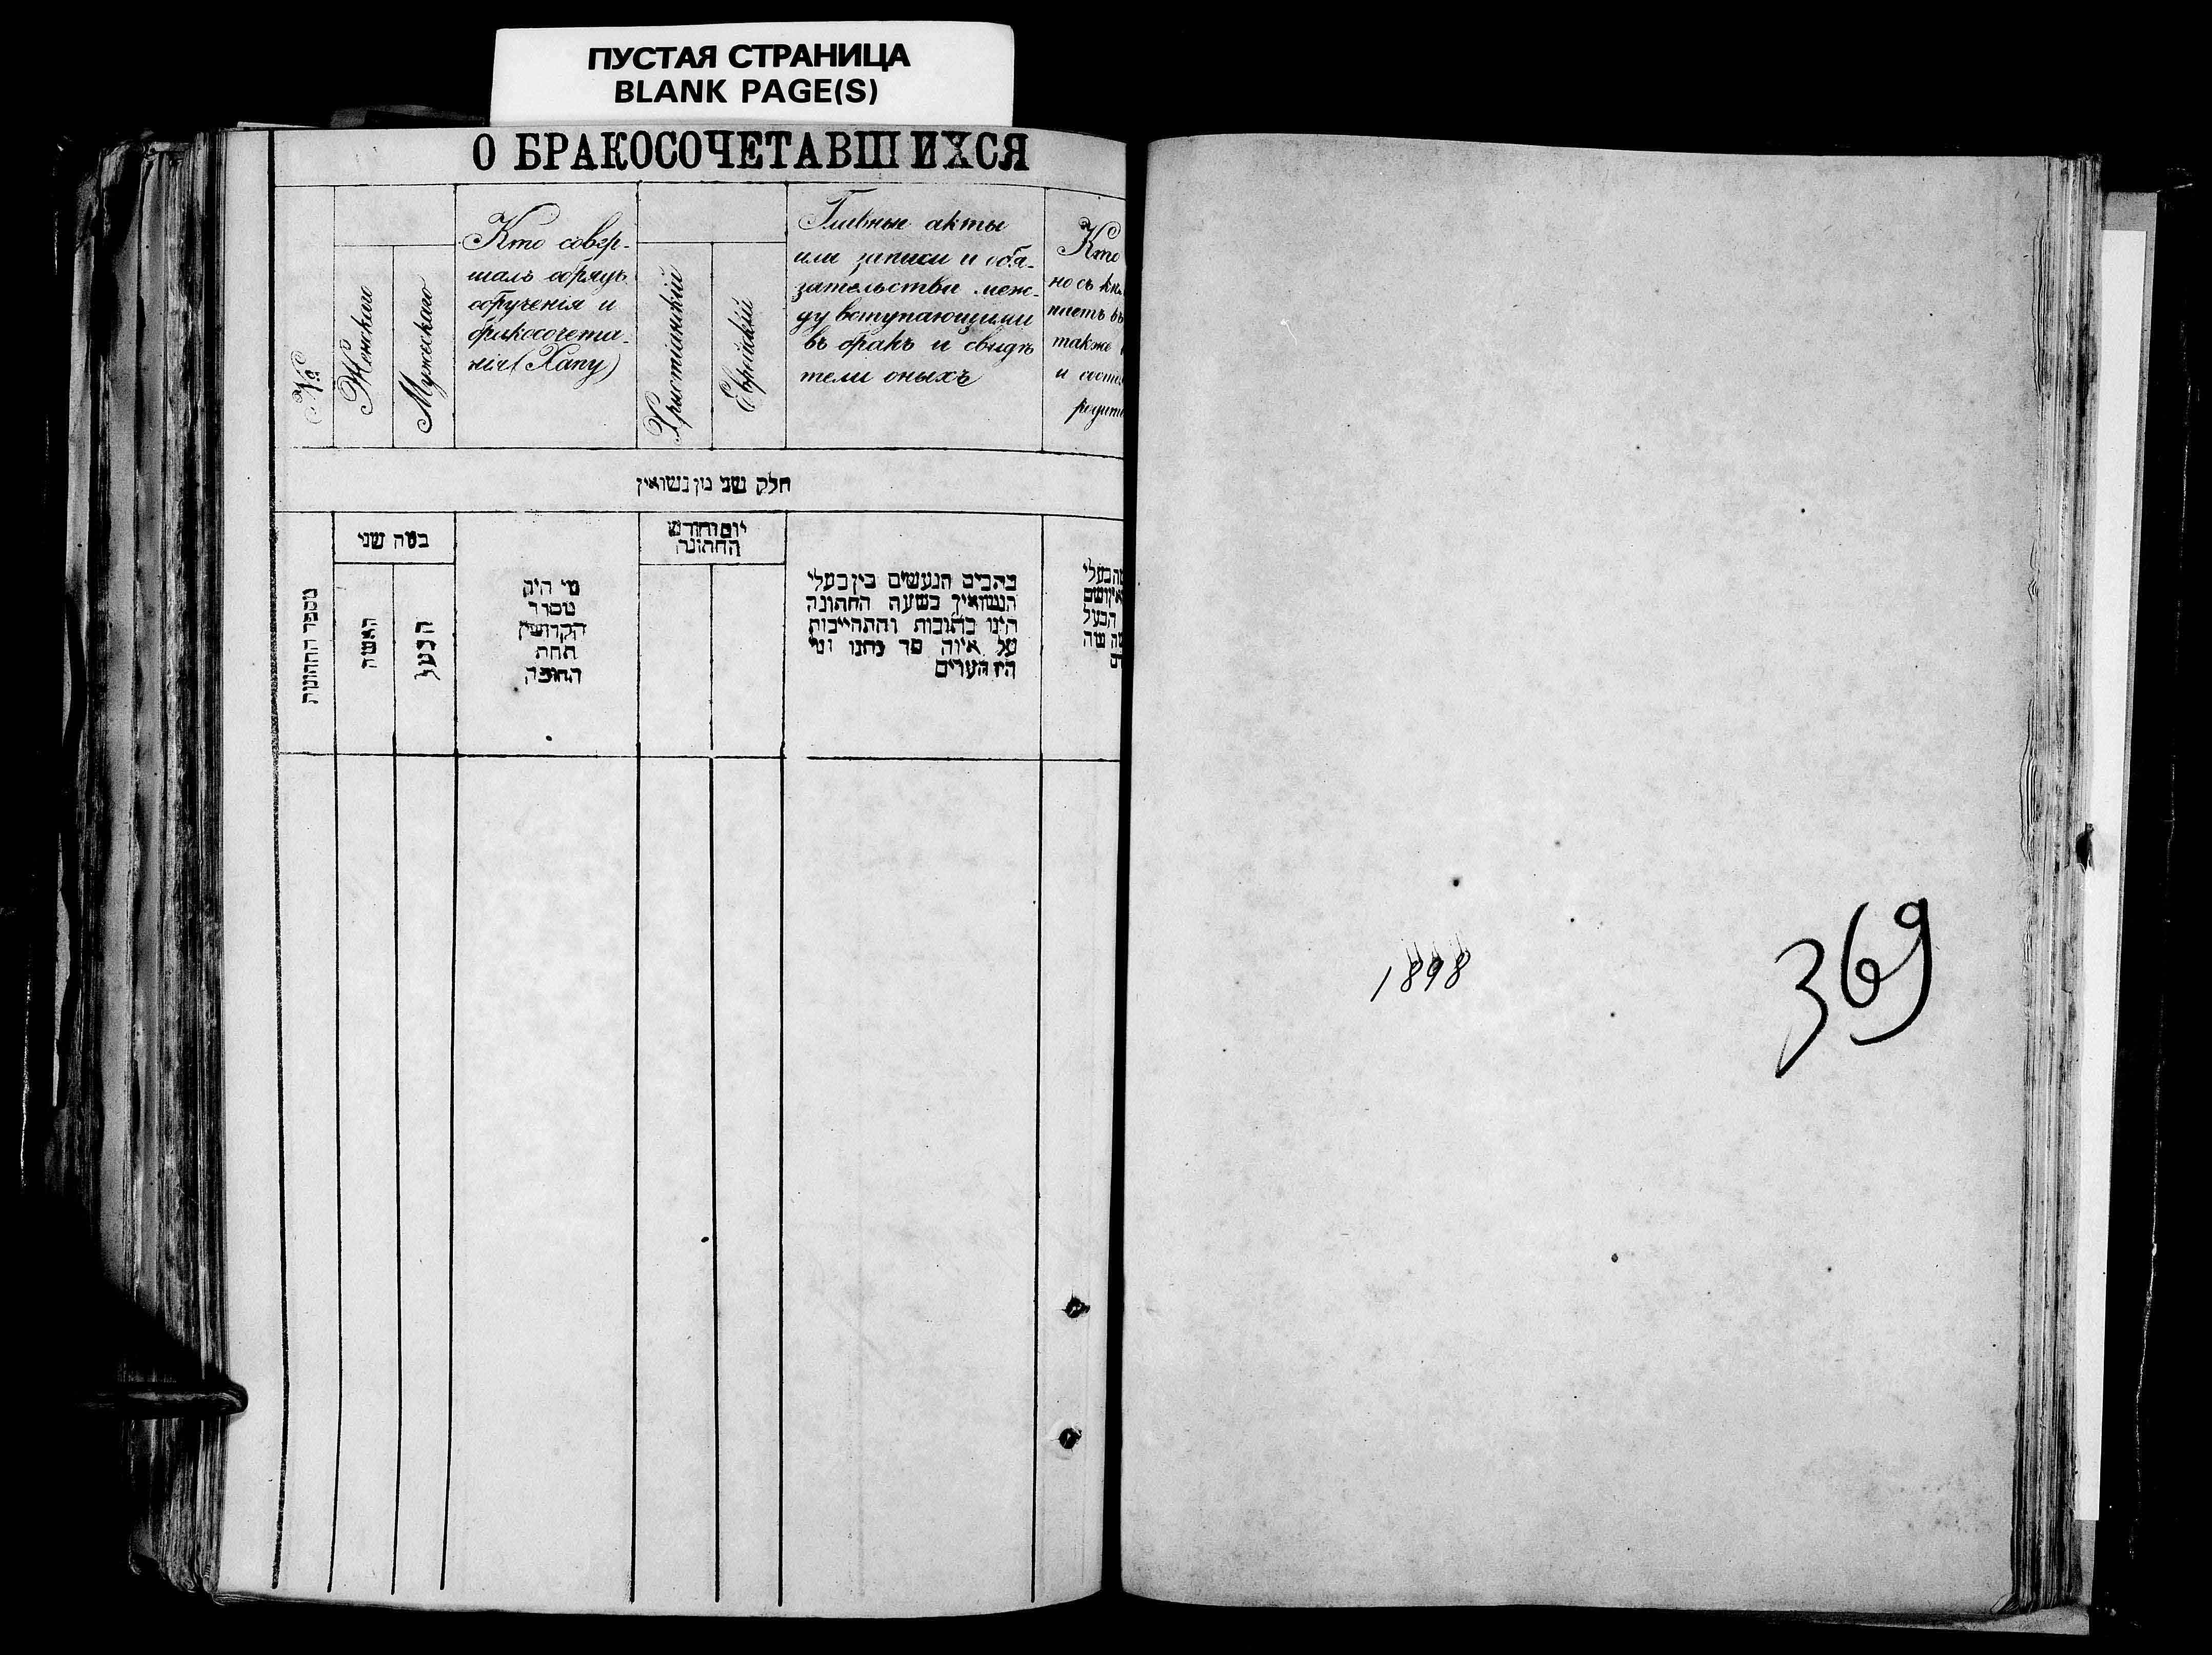 ПУСТАЯ СТРАНИЦА
BLANK PAGE(S)
О БРАКОСОЧЕТАВШИХСЯ
№
Женскаго
Мужескаго
Кто совер-
шалъ обрядъ
обрученія и
бракосочета-
нія (Хапу)
Христіанскій
Еврейскій
Главные акты
или записи и обя-
зательства меж-
ду вступающими
въ бракъ и свидѣ
тели оныхъ
Кто
но съ
также
и
חלק שני מן נשואין
מספר החתונות
כמה שני
האשה
הבעל
מי היה
מסדר
הקדושין
תחת
החופה
יום וחודש
החתונה
הנעשים בין בעלי
הנשואין בשעה החתונה
היינו כתובות והתחייבות
על איזה סך נתנו ומי
היו העדים
הבעל
1898
369